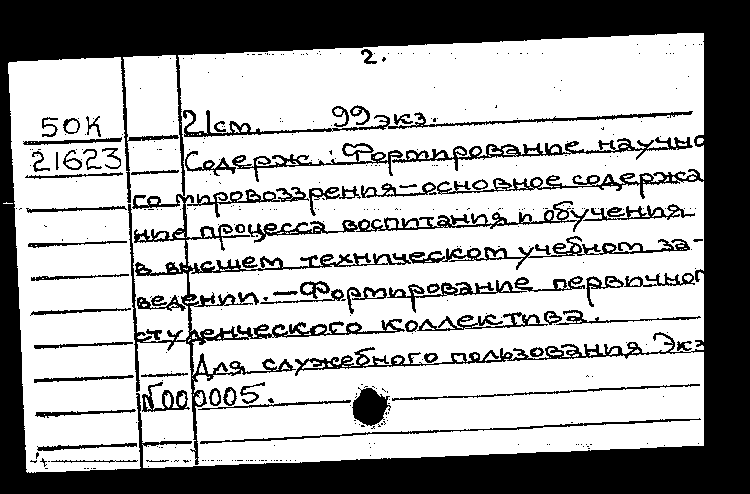 2.
50К 21см. 99экз.
21623 Содерж.: Формирование научно
го мировоззрения-основное содержа
ние процесса воспитания и обучения
в высшем техническом учебном за-
ведении.-Формирование первичног
студенческого коллектива.
Для служебного пользования Экз
№000005.